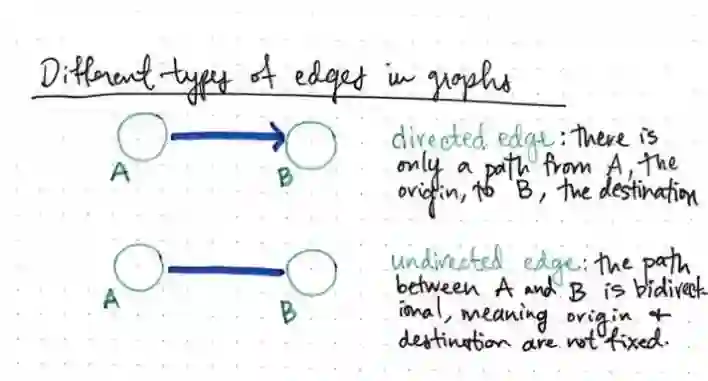 Different types of edges in graphs
A
B
directed edge: there is
only a path from A, the
origin, to B, the destination
A
B
undirected edge: the path
between A and B is bidirect-
ional, meaning origin +
destination are not fixed.